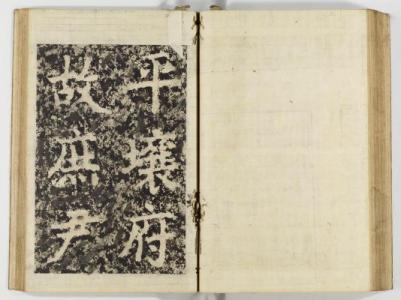 平壤府
故庶尹